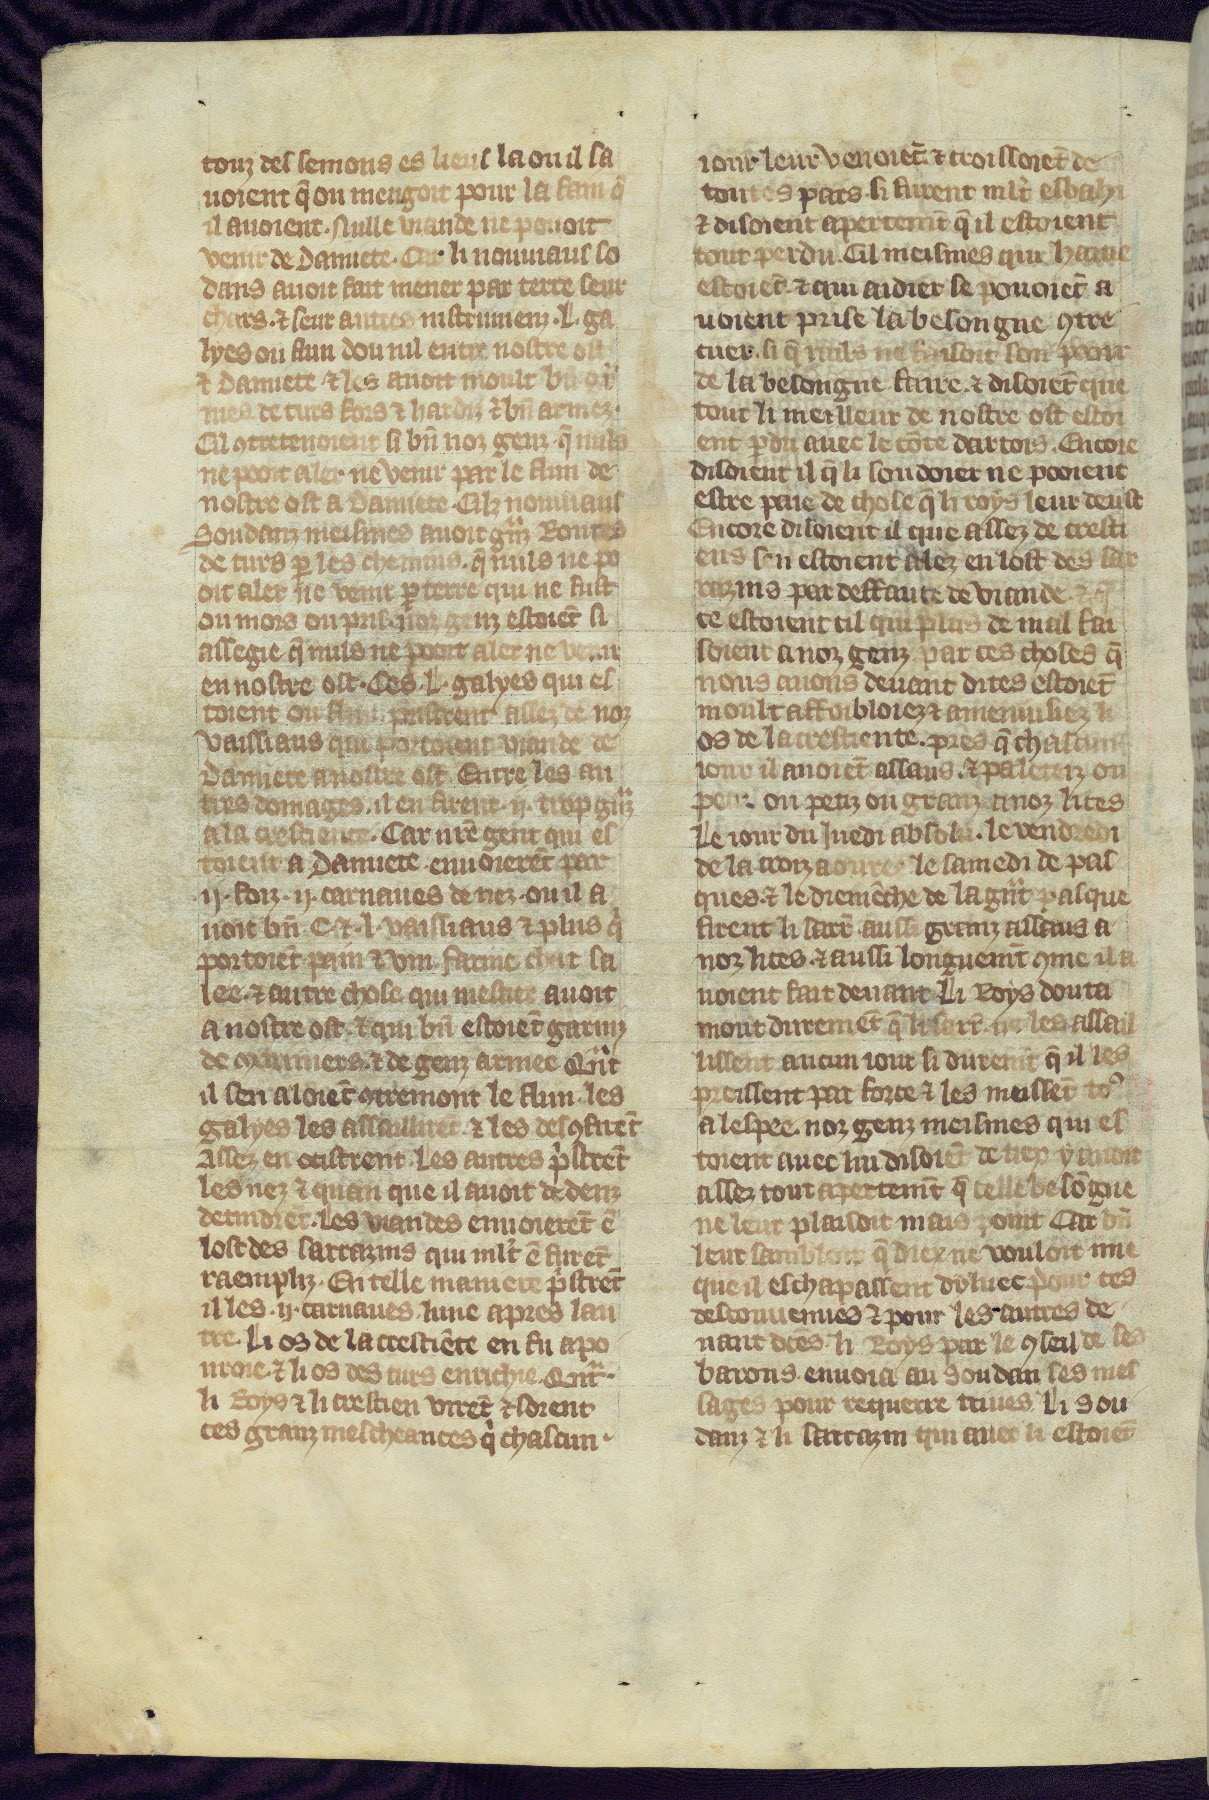 touz des semons es lieus la ou il sa
uoient q̃ on mengoit pour la fain q̃
il auoient. Nulle uiande ne pouoit
venir de Damiete. Car li nouuiaus so
dans auoit fait mener par terre seur
chars. ⁊ seur autres instrumenz .L. ga
lyes ou flun dou nil entre nostre ost
⁊ Damiete ⁊ les auoit moult bñ
mes de turs fors ⁊ hardiz ⁊ bñ armez.
Cil ꝯtretenoient si bñ noz genz. q̃ nuls
ne pooit aler ne venir par le flun de
nostre ost a Damiete. Cilz nouuiaus
Soudanz meismes auoit gñz Routes
de turs p̱ les chemins. q̃ nuls ne po
oit aler ne venir p̱ terre qui ne fust
ou mors ou pris. noz genz estoiẽt si
assegie q̃ nuls ne pooit aler ne venir
en nostre ost. Ces .L. galyes qui es
toient ou flun pristrent assez de noz
vaissiaus qui portoient viande de
Damiete a nostre ost. Entre les au
tres domages. il en firent .ij. trop gñz
a la crestiente. Car nr̃e gent qui es
toient a Damiete enuoierẽt par
.ij. foiz .ij. carnaues de nez. ou il a
uoit bñ .C. ⁊ .l. vaissiaus ⁊ plus q̃
portoiẽt pain ⁊ vin farine char sa
lee. ⁊ autre chose qui mestier auoit
a nostre ost. ⁊ qui bñ estoiẽt garniz
de mariniers. ⁊ de genz armee Qñt
il sen aloiẽt ꝯtremont le flun. les
galyes les assaillirẽt. ⁊ les desꝯfirẽt
Assez en ocistrent. Les autres p̃strẽt
les nez ⁊ quan que il auoit dedenz
detindrẽt. les viandes enuoierẽt ẽ
lost des sarrazins qui ml̃t ẽ furẽt
raempliz. En telle maniere p̃strẽt
il les .ij. carnaues. lune apres lau
tre. Li os de la crestiẽte en fu apo
uroie. ⁊ li os des turs enrichie. Qñt.
li Roys ⁊ li crestien virẽt ⁊ sorent
ces granz mescheances q̃ chascun
iour leur venoiẽt ⁊ croissoiẽt de
toutes pars. si furent ml̃t esbahi
⁊ disoient apertem̃t q̃ il estoient
tout perdu. Cil meismes qui haitie
estoiẽt. ⁊ qui aidier se pouoiẽt a
uoient prise la besongne ꝯtre
cuer. si q̃ nuls ne faisoit son pooir
de la besongne faire. ⁊ disoiẽt que
tout li meilleur de nostre ost estoi
ent p̱du auec le cõte dartois. Encore
disoient il q̃ li soudoier ne pooient
estre paie de chose q̃ li roys leur deust
Encore disoient il que assez de cresti
ens sen estoient alez en lost des sar
razins par deffaute de viande. ⁊
ce estoient cil qui plus de mal fai
soient a noz genz. par ces choses q̃
nous auons deuant dites estoiẽt
moult affoibloiez ⁊ amenuisiez li
os de la crestiente. pres q̃ chascun
iour il auoiẽt assaus. ⁊ paleteiz ou
petiz ou granz a noz lices
Le iour du Juedi absolu. le vendredi
de la croiz aouree le samedi de pas
ques. ⁊ le diemẽche de la gñt pasque
firent li sarr̃ aussi granz assaus a
noz lices. ⁊ aussi longuem̃t ꝯme il a
uoient fait deuant Li Roys douta
mout duremẽt q̃ li sarr̃ ne les assail
lissent aucun iour si durem̃t q̃ il les
preissent par force ⁊ les meissẽt toꝰ
a lespee. noz genz meismes qui es
toient auec lui disoiẽt de tiex y auoit
assez tout apertem̃t q̃ telle besõgne
ne leur plaisoit mais point Car bñ
leur sambloit q̃ diex ne vouloit mie
que il eschapassent dyluec pour ces
desconuenues ⁊ pour les autres de
uant dc̃es. li Roys par le ꝯseil de ses
barons. enuoia au Soudan ses mes
sages pour requerre triues. Li Sou
danz ⁊ li sarrazin qui auec li estoiẽt